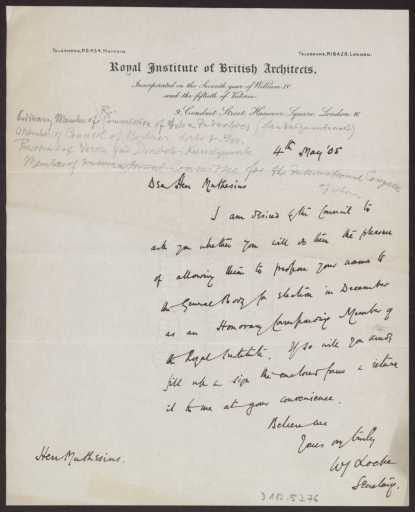 TELEPHONE, P.O. 434, MAYFAIR.
TELEGRAMS, "RIBAZO, LONDON."
Royal Institute of British Architects.
Incorporated in the Seventh year of William IV
and the fiftieth of Victoria.
9, Conduit Street, Hanover Square, London. W
Ordinary Member of Commission of
Member of Council of
Member of International Committee for the International Congress
4th May '05
Dear Herr Muthesius
I am desired by the Council to
ask you whether you will do them the pleasure
of allowing them to propose your name to
the General Body for election in December
as an Honorary Corresponding Member of
the Royal Institute. If so will you kindly
fill up & sign the enclosed form & return
it to me at your convenience.
Believe me
Yours very truly
WJ Locke
Secretary.
Herr Muthesius.
D 102-5276